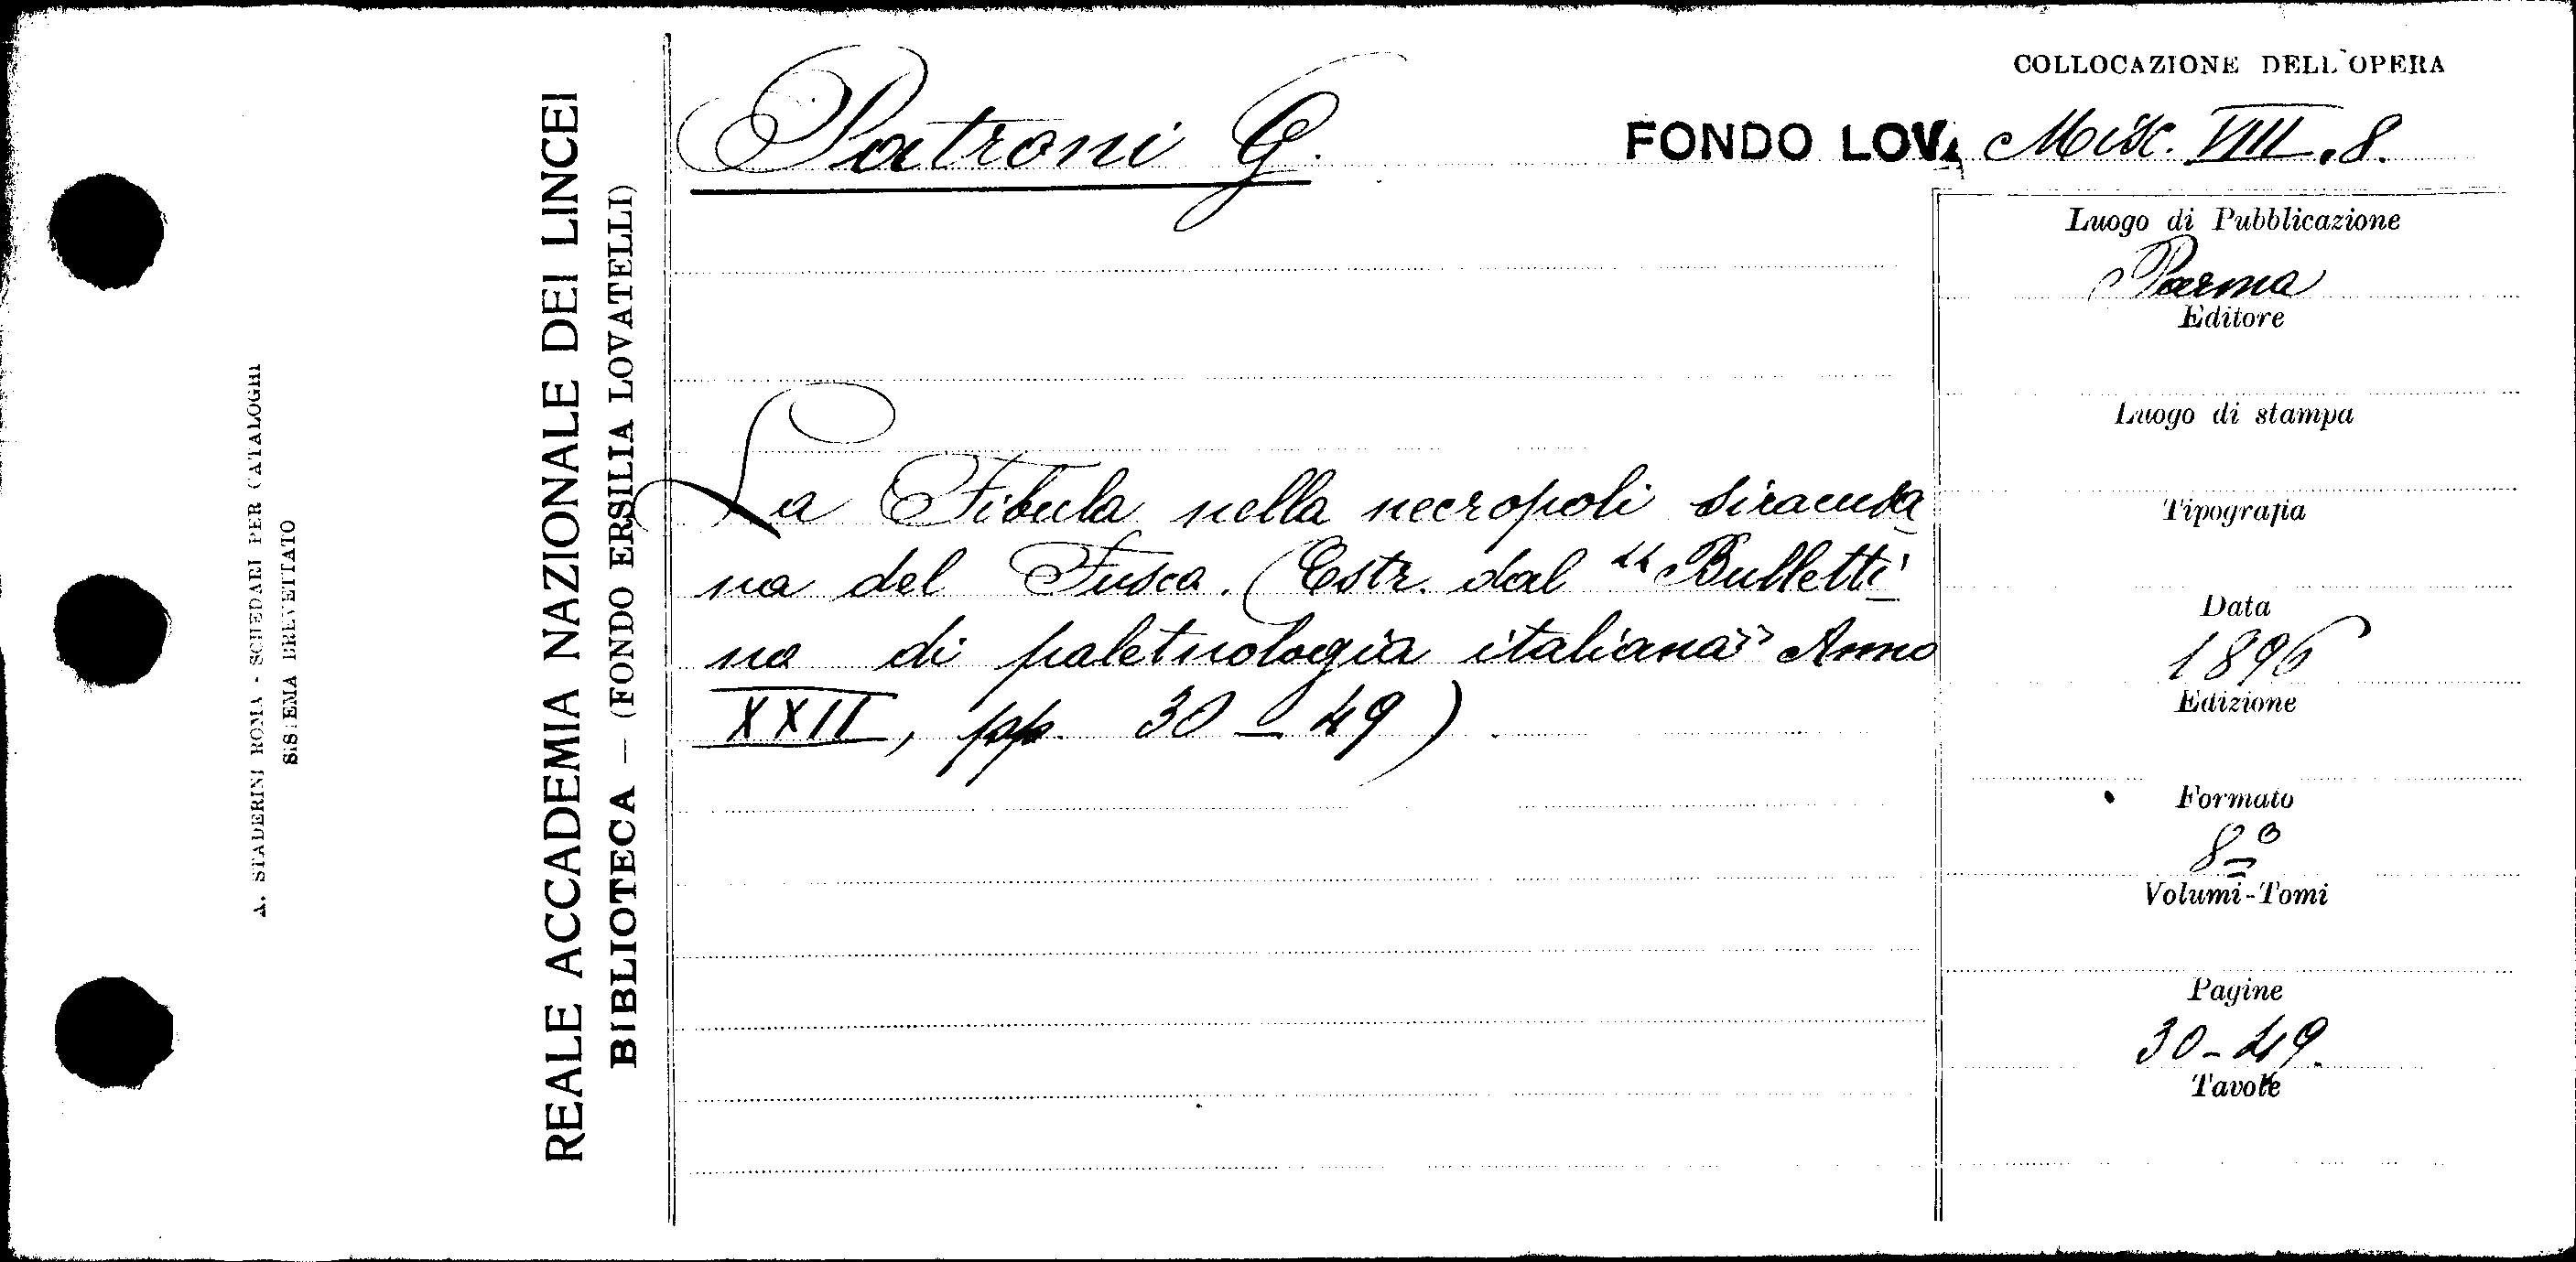 A. STADERINI ROMA - SCHEDARI PER CATALOGHI
SISTEMA BREVETTATO
REALE ACCADEMIA NAZIONALE DEI LINCEI
BIBLIOTECA — (FONDO ERSILIA LOVATELLI)
Patroni G.
COLLOCAZIONE DELL'OPERA
FONDO LOV. Misc. VIII. 8.
La Fibula nella necropoli siracusa
na del Fusco. (Estr. dal "Bulletti
no di paletnologia italiana" Anno
XXII, pp. 30 - 49)
Luogo di Pubblicazione
Parma
Editore
Luogo di stampa
Tipografia
Data
1896
Edizione
Formato
8º
Volumi-Tomi
Pagine
30-49.
Tavole